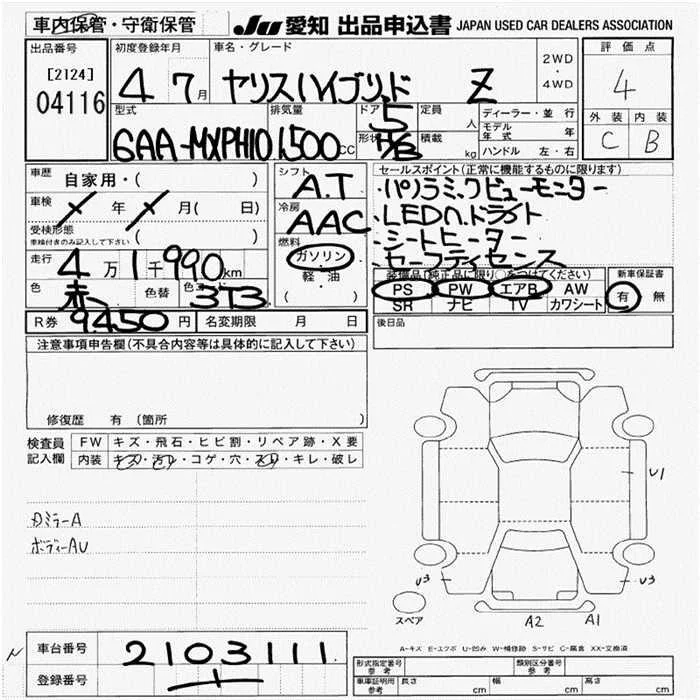 車内保管・守衛保管
Ju 愛知 出品申込書 JAPAN USED CAR DEALERS ASSOCIATION
出品番号
[2124]
04116
初度登録年月
4 7月
車名・グレード
ヤリスハイブリッド Z
2WD
・
4WD
評価点
4
外装 内装
C B
型式
6AA-MXPH10
排気量
1,500 CC
ドア 5
形状 H/B
定員
人
積載
kg
ディーラー・並行
モデル年式 年
ハンドル 左・右
車歴
自家用・( )
車検 年 月( 日)
受検形態
車検付きのみ記入して下さい ( )
走行
4万1千990km
色 赤 色替 色コード 3T3
シフト
A.T
冷房
AAC
燃料
ガソリン
軽・油
( )
セールスポイント(正常に機能するものに限ります)
・パノラミックビューモニター
・LEDヘッドライト
・シートヒーター
・セーフティセンス
装備品(純正品に限り○をつけてください)
PS PW エアB AW
SR ナビ TV カワシート
新車保証書
有 無
R券 9450円 名変期限 月 日
後日品
注意事項申告欄(不具合内容等は具体的に記入して下さい)
修復歴 有 〔箇所 〕
検査員記入欄
FW キズ・飛石・ヒビ割・リペア跡・X要
内装 キズ・汚レ・コゲ・穴・スレ・キレ・破レ
ミラーA
ボディーAU
U1
U3
U3
スペア
A2 A1
A-キズ E-エクボ U-凹み W-補修跡 S-サビ C-腐食 XX-交換済
車台番号 2103111
登録番号
形式指定番号 参考
類別区分番号 参考
車庫証明用 参考 長さ cm 幅 cm 高さ cm